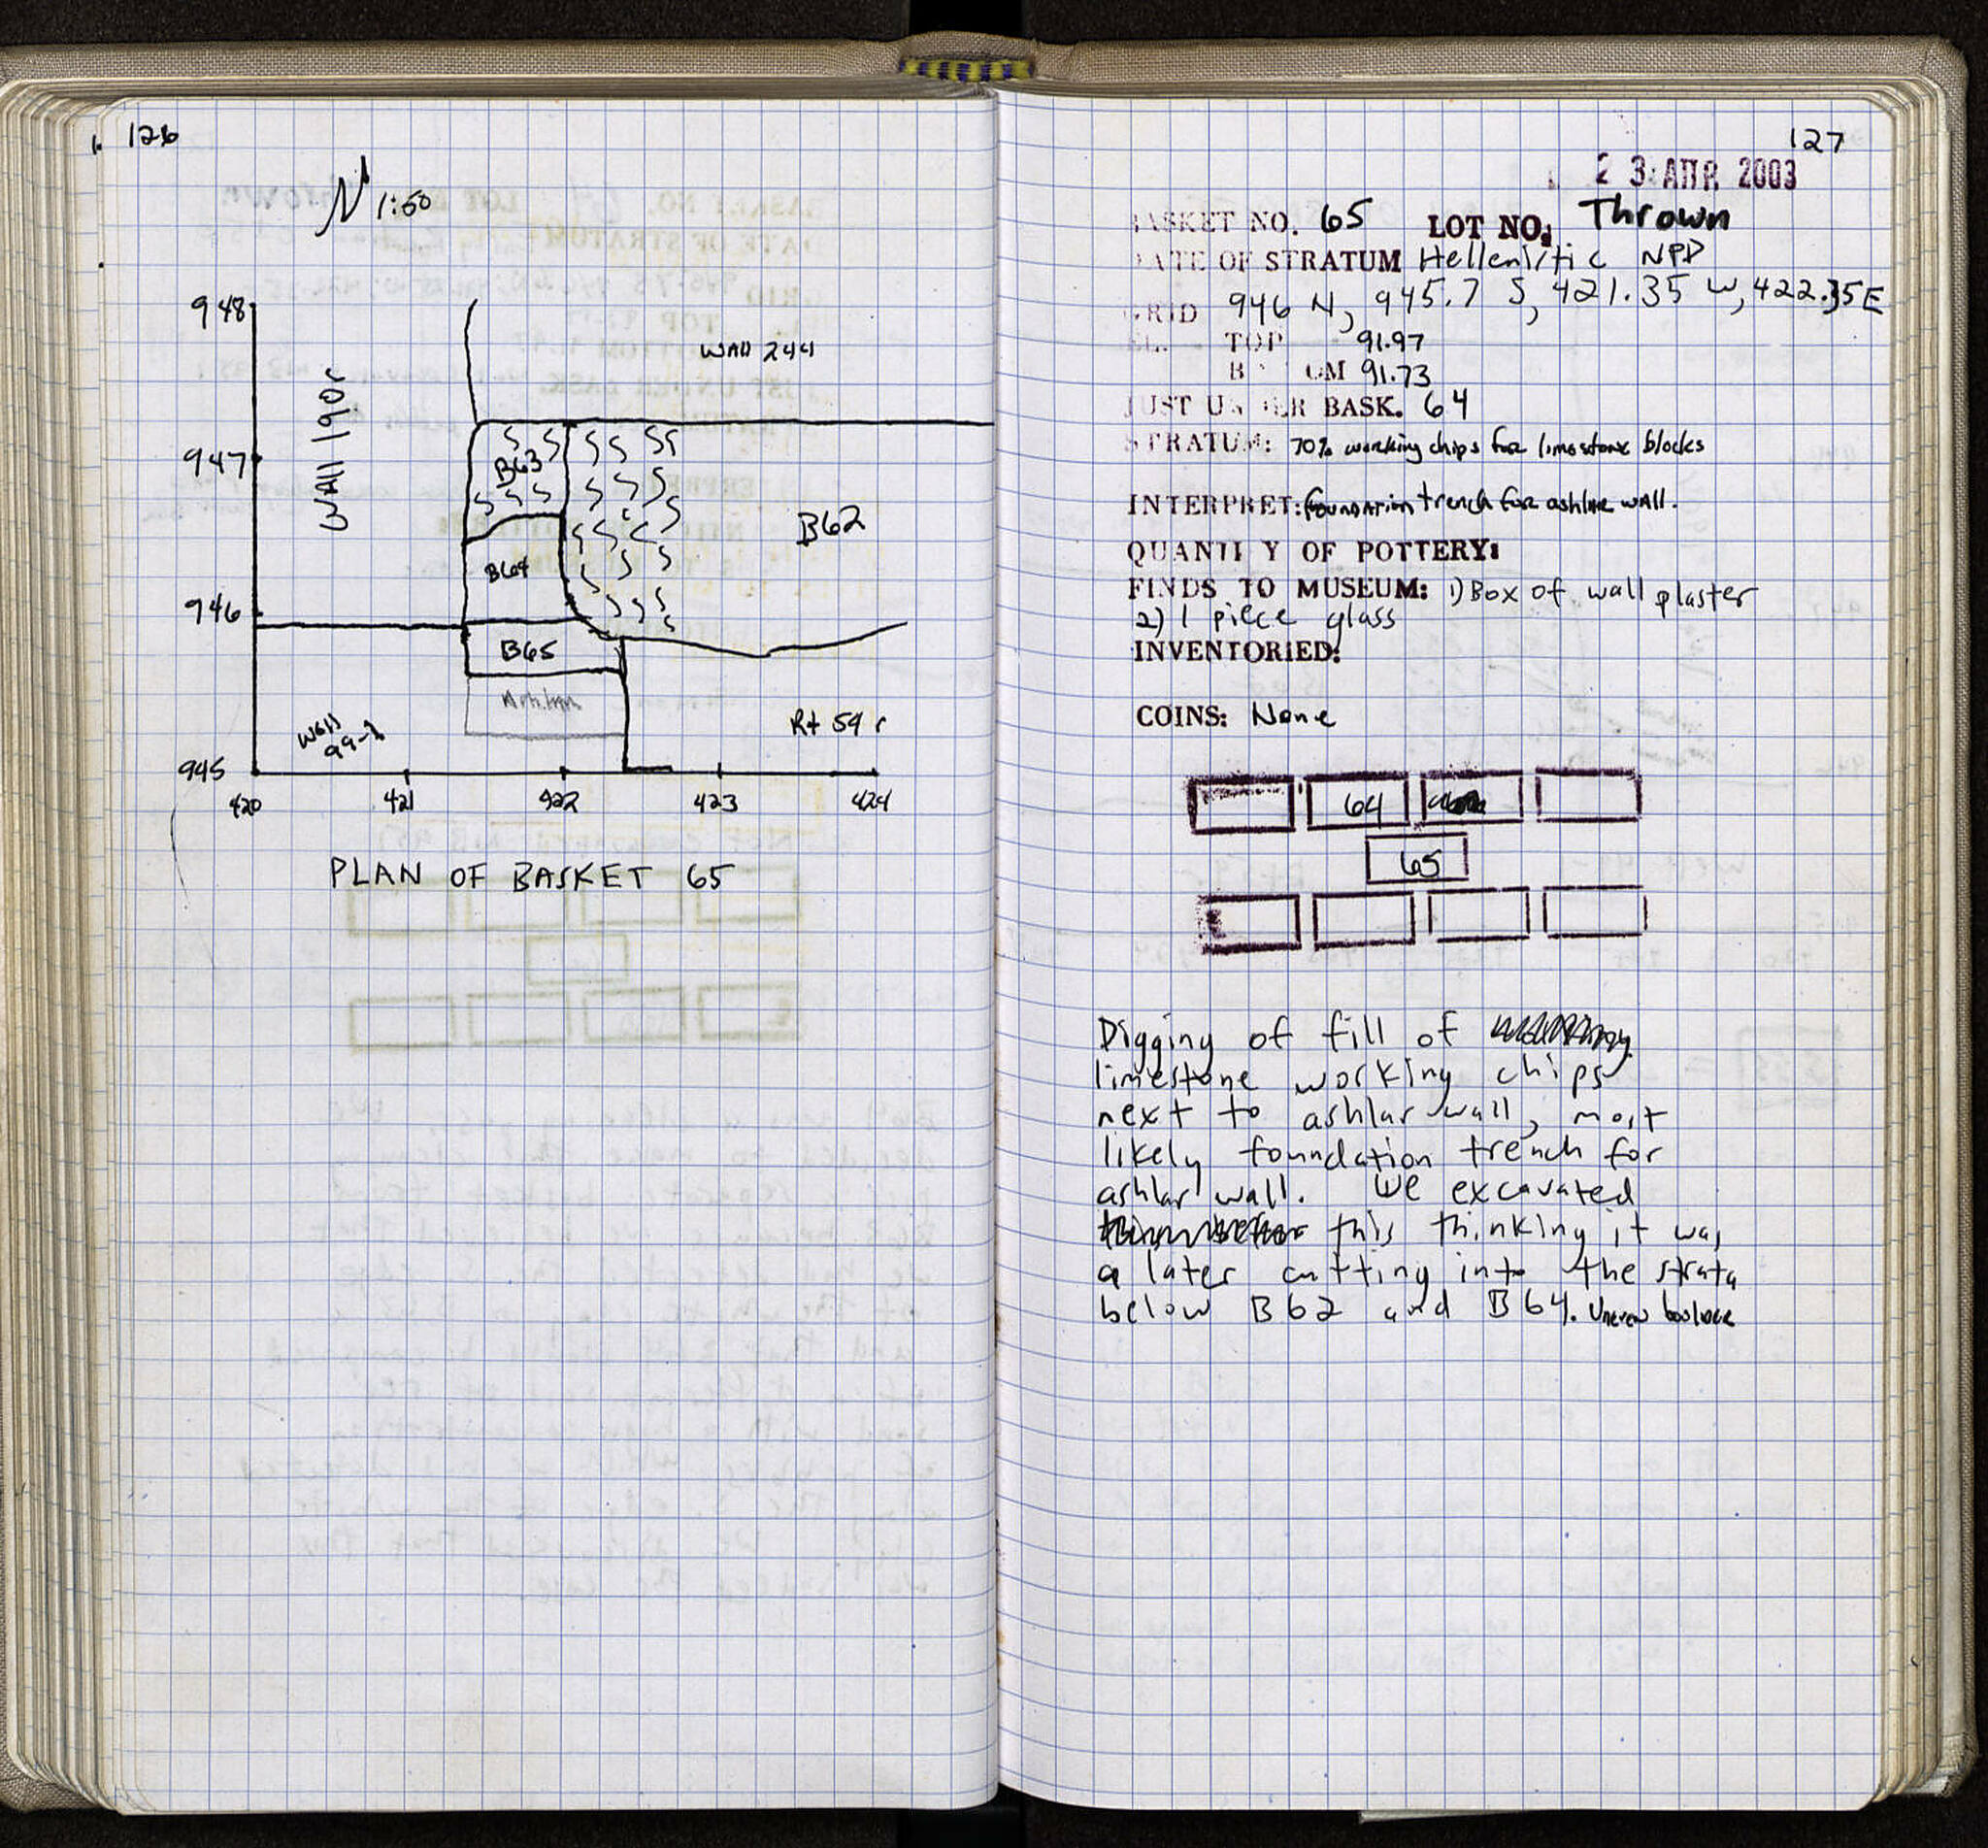 126
N 1:50
948
947
946
945
420 421 422 423 424
Wall 190r
Wall 244
B63
B62
B64
B65
Rt 59 r
Wall
99-1
PLAN OF BASKET 65
127
23 ΑΠΡ. 2003
BASKET NO. 65 LOT NO: Thrown
DATE OF STRATUM Hellenistic NPD
GRID 946 N, 945.7 S, 421.35 W, 422.35 E
EL. TOP 91.97
BOTTOM 91.73
JUST UNDER BASK. 64
STRATUM: 70% working chips for limestone blocks
INTERPRET: foundation trench for ashlar wall.
QUANTITY OF POTTERY:
FINDS TO MUSEUM: 1) Box of wall plaster
2) 1 piece glass
INVENTORIED:
COINS: None
64
65
Digging of fill of
limestone working chips
next to ashlar wall, most
likely foundation trench for
ashlar wall. We excavated
this thinking it was
a later cutting into the strata
below B62 and B64.